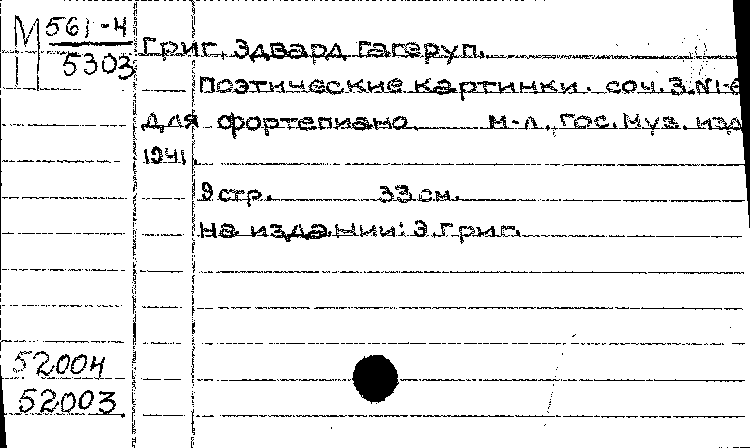 М 561-4
5303
Григ, Эдвард Гагеруп.
Поэтические картинки. соч. 3. №1-6
для фортепиано. М-Л., Гос. муз. изд
1941.
9 стр. 33 см.
На издании: Э. Григ.
52004
52003.